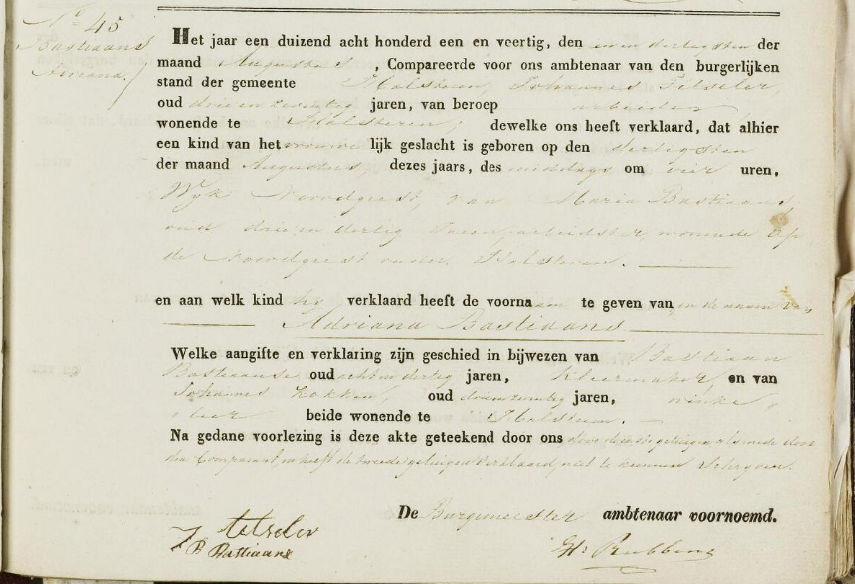 No 45
Bastiaans
Adriana
Het jaar een duizend acht honderd een en veertig, den een en dertigsten der
maand Augustus, Compareerde voor ons ambtenaar van den burgerlijken
stand der gemeente Halsteren, Johannes Tetseler,
oud drie en zeventig jaren, van beroep arbeider
wonende te Halsteren, dewelke ons heeft verklaard, dat alhier
een kind van het vrouwelijk geslacht is geboren op den dertigsten
der maand Augustus, dezes jaars, des middags om vier uren,
Wyk Noordgeest, van Maria Bastiaans,
oud drie en dertig jaren, arbeidster wonende op
de Noordgeest onder Halsteren.
en aan welk kind hy verklaard heeft de voornaam te geven van en de naam van
Adriana Bastiaans
Welke aangifte en verklaring zijn geschied in bijwezen van Bastiaan
Bastiaanse oud acht en dertig jaren, Kleermaker, en van
Johannes Kokken, oud jaren, winke
lier beide wonende te Halsteren.
Na gedane voorlezing is deze akte geteekend door ons getuigen alsmede door
den Comparant, en heeft de tweede getuigen verklaard, niet te kunnen Schryven.
De Burgemeester ambtenaar voornoemd.
J tetseler
B Bastiaans